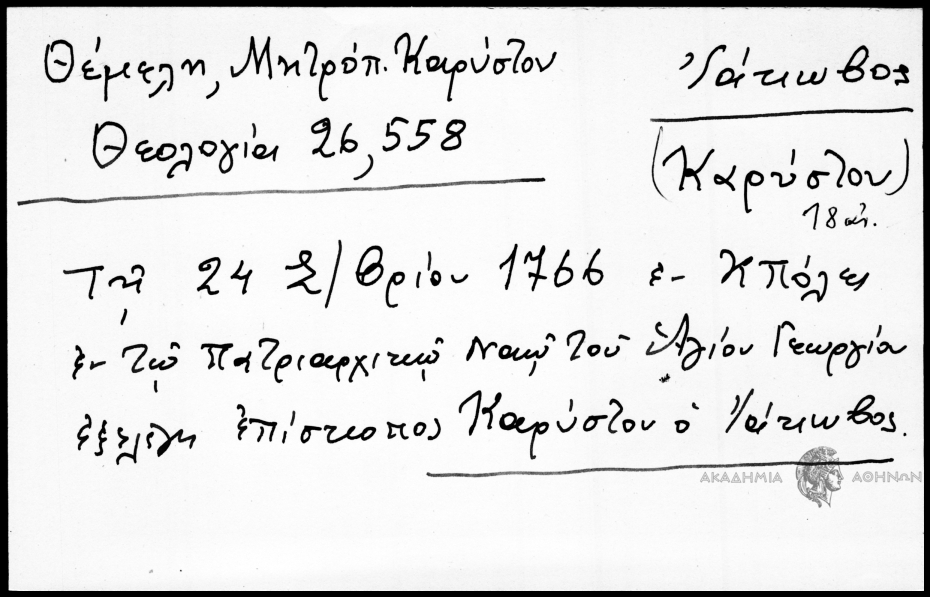 Θέμελη, Μητρόπ. Καρύστου
Θεολογία 26, 558
Ἰάκωβος
(Καρύστου)
18 αἰ.
Τῇ 24 Σ/βρίου 1766 ἐν Κπόλει
ἐν τῷ Πατριαρχικῷ Ναῷ τοῦ Ἁγίου Γεωργίου
ἐξελέγη ἐπίσκοπος Καρύστου ὁ Ἰάκωβος.
ΑΚΑΔΗΜΙΑ ΑΘΗΝΩΝ